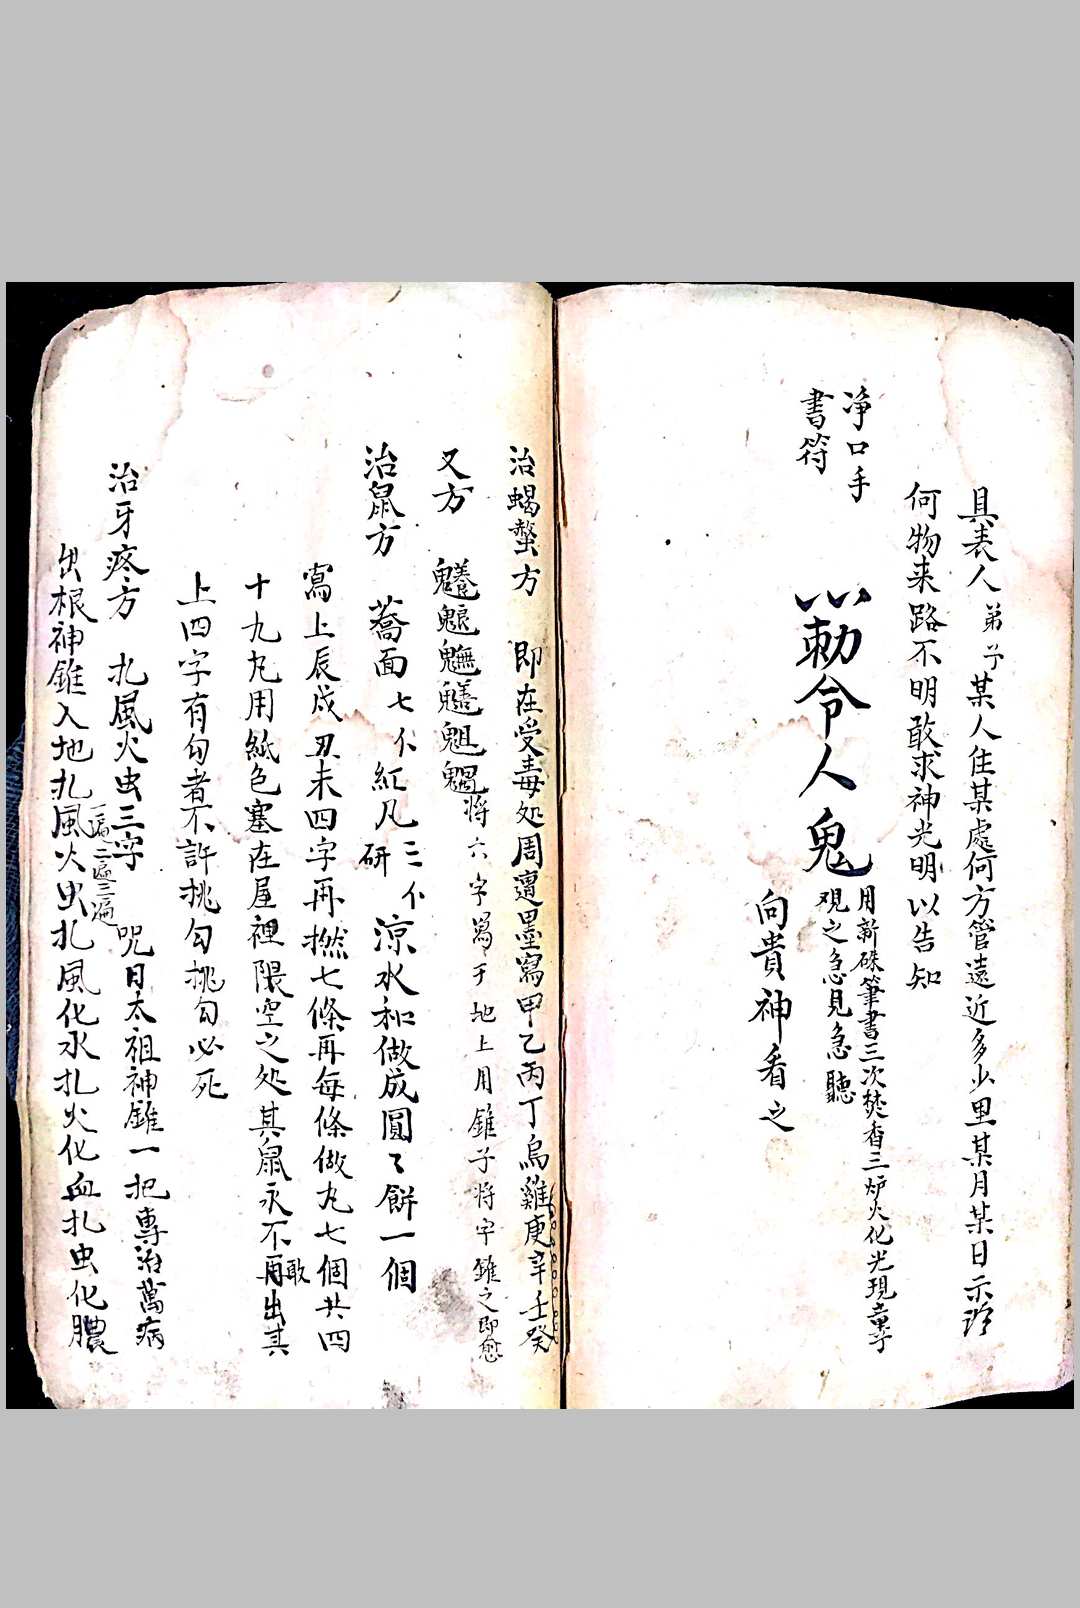 具表人弟子某人住某處何方管遠近多少里某月某日示
何物来路不明敢求神光明以告知
净口手
書符
勅令人鬼
用新硃筆書三次焚香三炉火化光現童子
观之急見急聽
向貴神看之
治蝎螫方 即在受毒处周遭墨寫甲乙丙丁烏雞庚辛壬癸
又方 將六字寫于地上用錐子將字錐之即愈
治鼠方 蕎面七个紅凡三个研凉水和做成圓〻餅一個
寫上辰戌丑未四字再撚七條再每條做丸七個共四
十九丸用紙色塞在屋裡隈空之处其鼠永不敢再出其
上四字有勾者不許挑勾挑勾必死
治牙疼方 扎風火虫三字一遍二遍三遍咒日太祖神錐一把專治萬病
出根神錐入地扎風火虫扎風化水扎火化血扎虫化膿